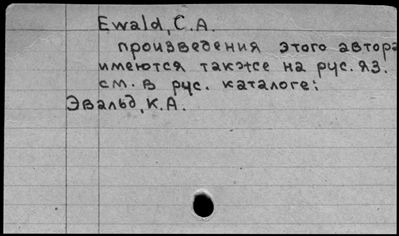 Ewald, C.A.
произведения этого автора
имеются также на рус. яз.
см. в рус. каталоге:
Эвальд, К.А.